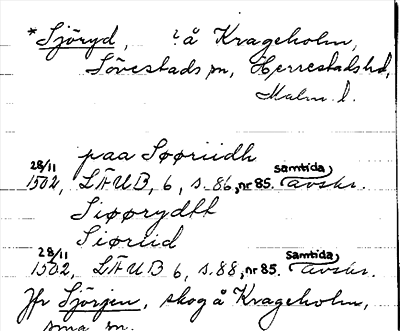 *Sjöryd, ?å Krageholm,
Sövestads sn, Herrestads hd,
Malm. l.
paa Søøriidh
28/11 1502, LÄUB, 6, s. 86, nr 85. samtida avskr.
Siøørydtt
Siøriid
28/11 1502, LÄUB 6, s. 88, nr 85. samtida avskr.
Jfr Sjörjen, skog å Krageholm,
sma sn.